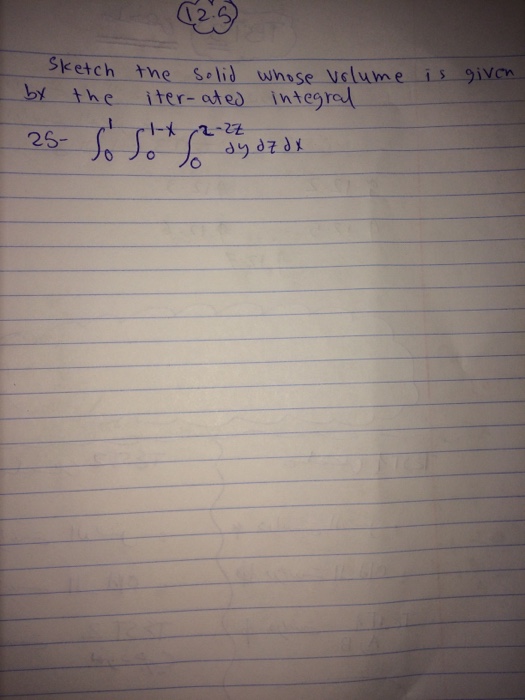 12.5
Sketch the solid whose volume is given
by the iter-ated integral
25- ∫₀¹ ∫₀^{1-x} ∫₀^{2-2z} dy dz dx